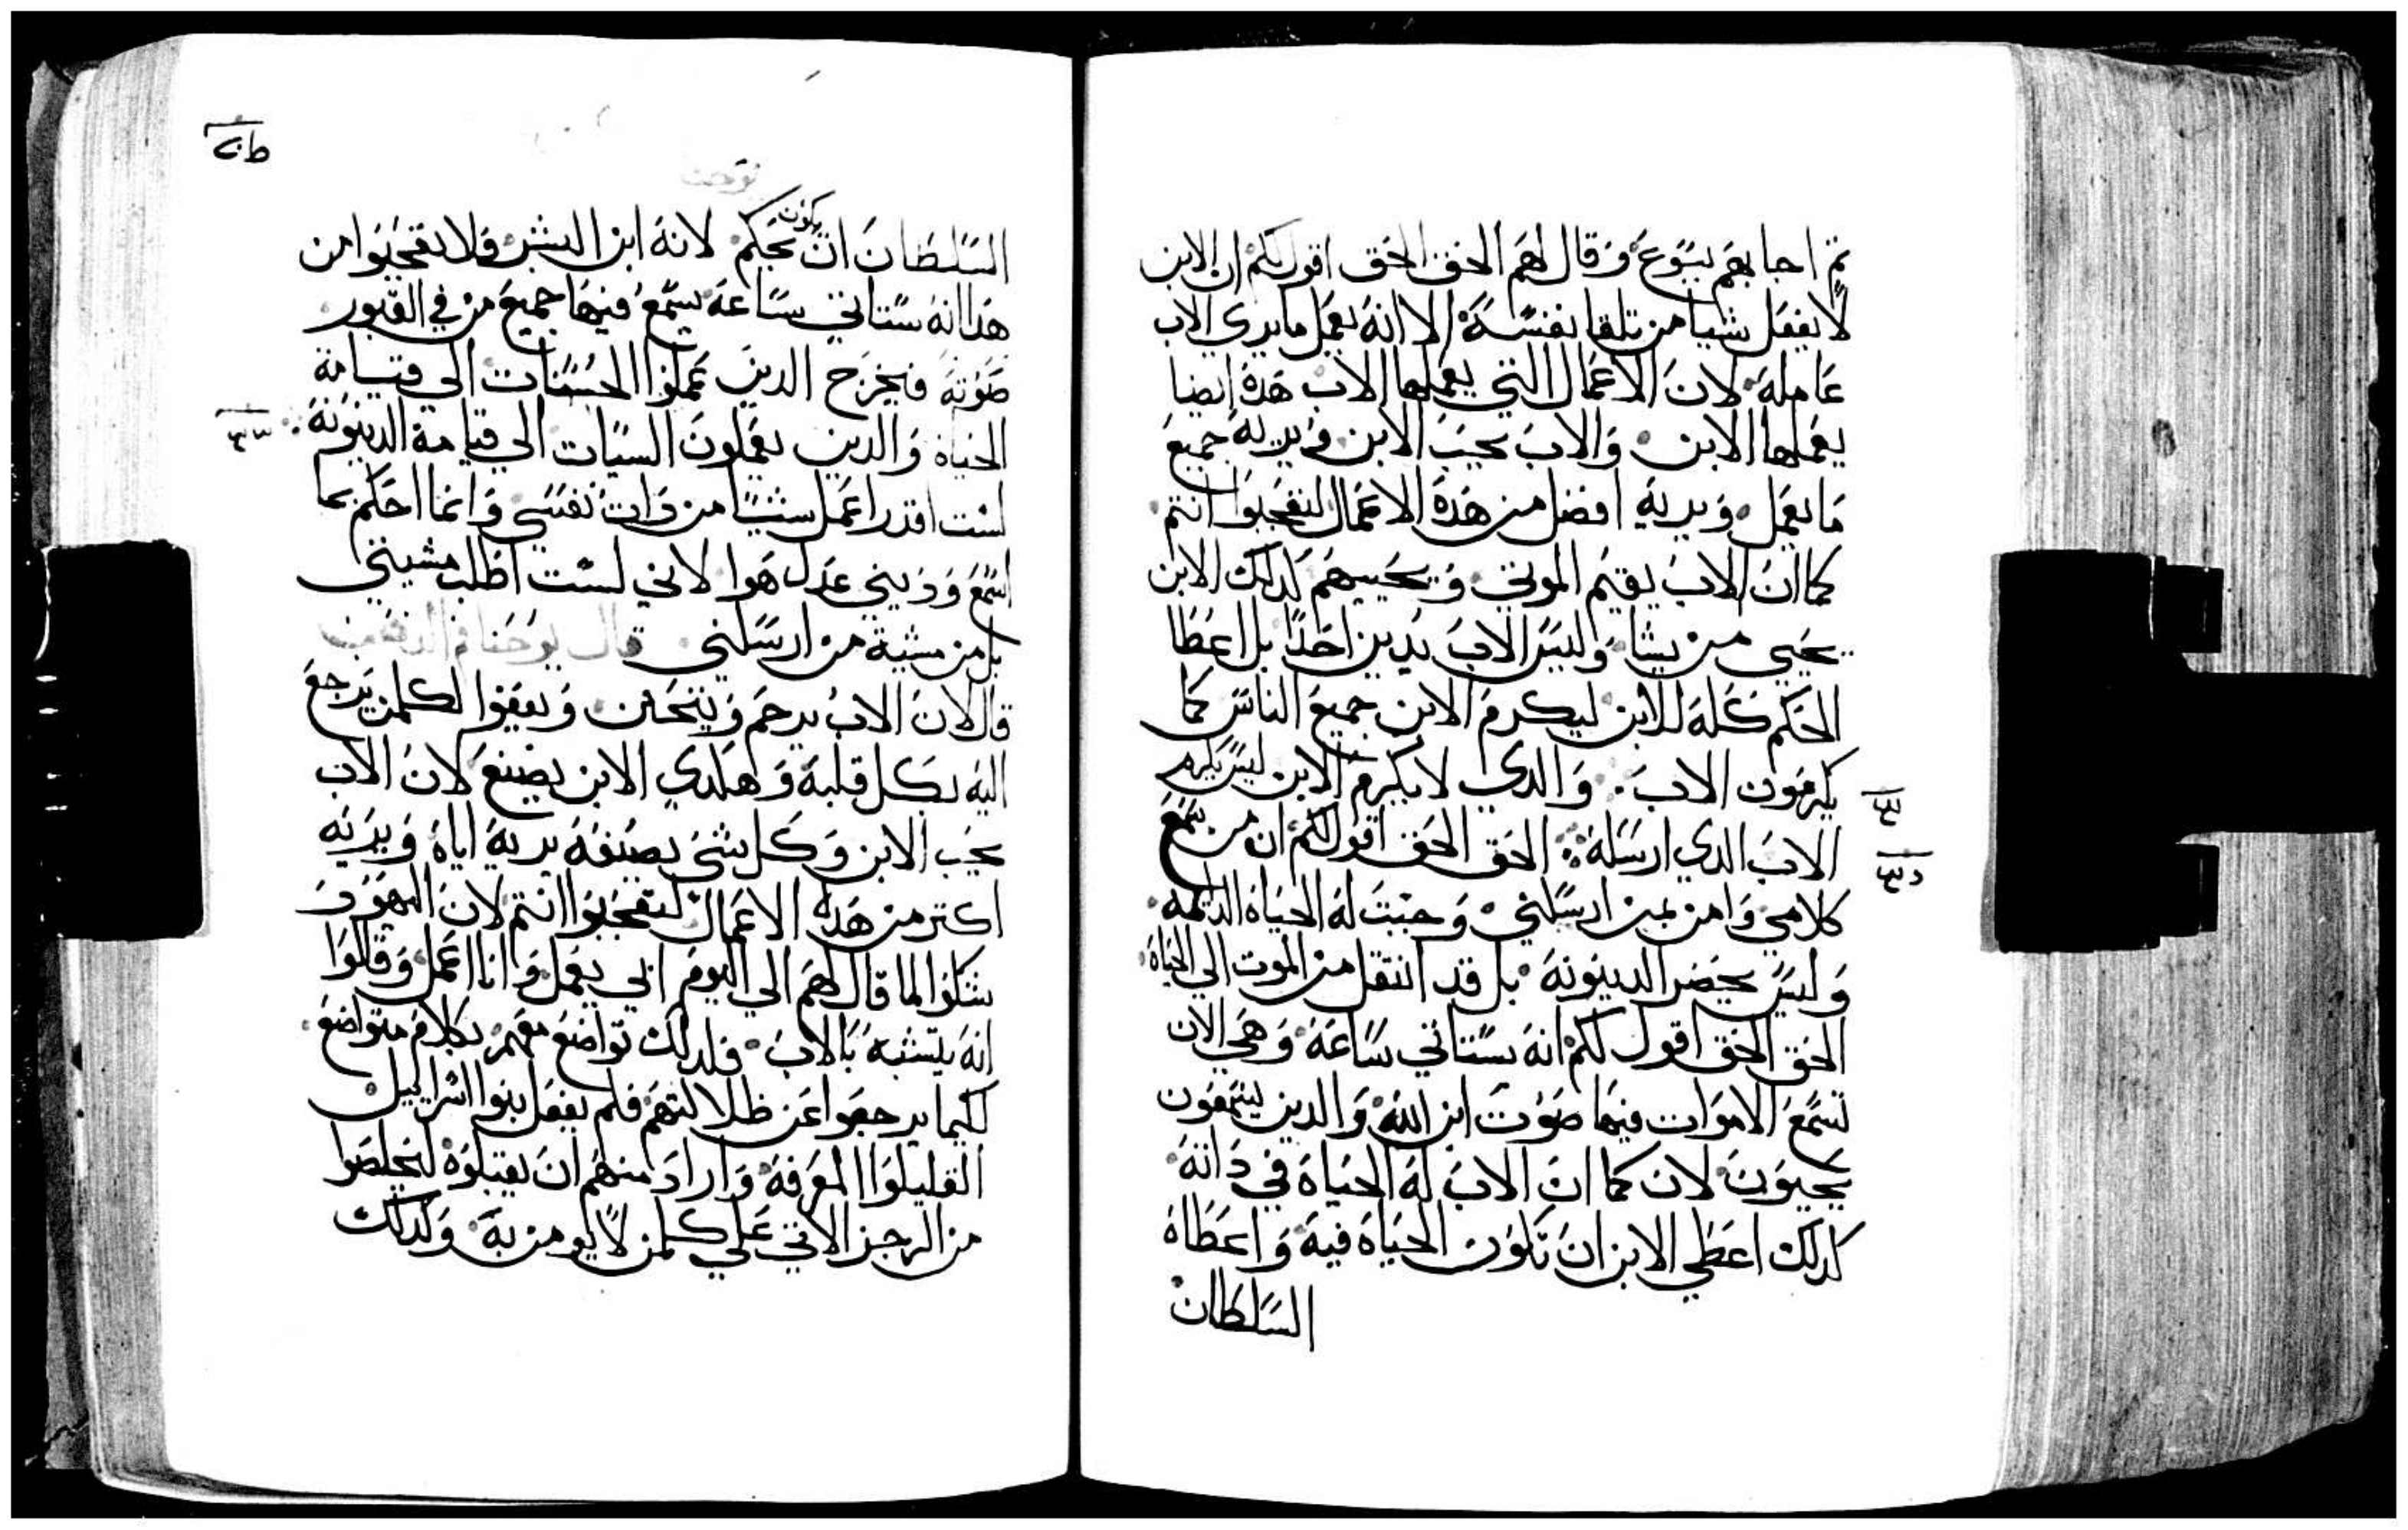 ثم اجابهم يسوع وقال لهم الحق الحق اقول لكم ان الابن
لا يفعل شيا من تلقا نفسه الا انه يعمل ما يري الاب
عامله لان الاعمال التي يعملها الاب هده ايضا
يعملها الابن والاب يحب الابن ويريه جميع
ما يعمل ويريه افضل من هده الاعمال لتعجبوا انتم
كما ان الاب يقيم الموتي ويحييهم كدلك الابن
يحيي من يشا وليس الاب يدين احدا بل اعطا
الحكم كله للابن ليكرم الابن جميع الناس كما
يكرمون الاب والدي لا يكرم الابن ليس يكرم
الاب الدي ارسله الحق الحق اقول لكم ان من سمع
كلامي وامن بمن ارسلني وجبت له الحياة الدايمه
وليس يحضر الدينونة بل قد انتقل من الموت الي الحياة
الحق الحق اقول لكم انه ستاتي ساعة وهي الان
تسمع الاموات فيها صوت ابن الله والدين يسمعون
يحيون لان كما ان الاب له الحياة في داته
كدلك اعطي الابن ان تكون الحياة فيه واعطاه
السلطان
السلطان ان يكون يحكم لانه ابن البشر فلا تعجبوا من
هدا انه ستاتي ساعة يسمع فيها جميع من في القبور
صوته فيخرج الدين عملوا الحسنات الي قيامة
الحياة والدين يعملون السيات الي قيامة الدينونة
لست اقدر اعمل شيا من دات نفسي وانما احكم بما
اسمع وديني عدل هوا لاني لست اطلب مشيتي
بل من مشية من ارسلني قال يوحنا فم الدهب
قال لان الاب يرحم ويتحنن ويعفوا لكلمن يرجع
اليه بكل قلبه وهكدي الابن يصنع لان الاب
يحب الابن وكل شي يصنعه يريه اياه ويريه
اكتر من هده الاعمال لتعجبوا انتم لان اليهود
شكوا لما قال لهم الي اليوم ابي يعمل وانا اعمل وقالوا
انه يتشبه بالاب فلدلك تواضع معهم بكلام متواضع
لكيما يرجعوا عن ظلالتهم فلم يفعل بنوا اسراييل
القليلوا المعرفة واراد منهم ان يقبلوه ليخلصوا
من الرجز الاتي علي كلمن لا يومن به وكدلك